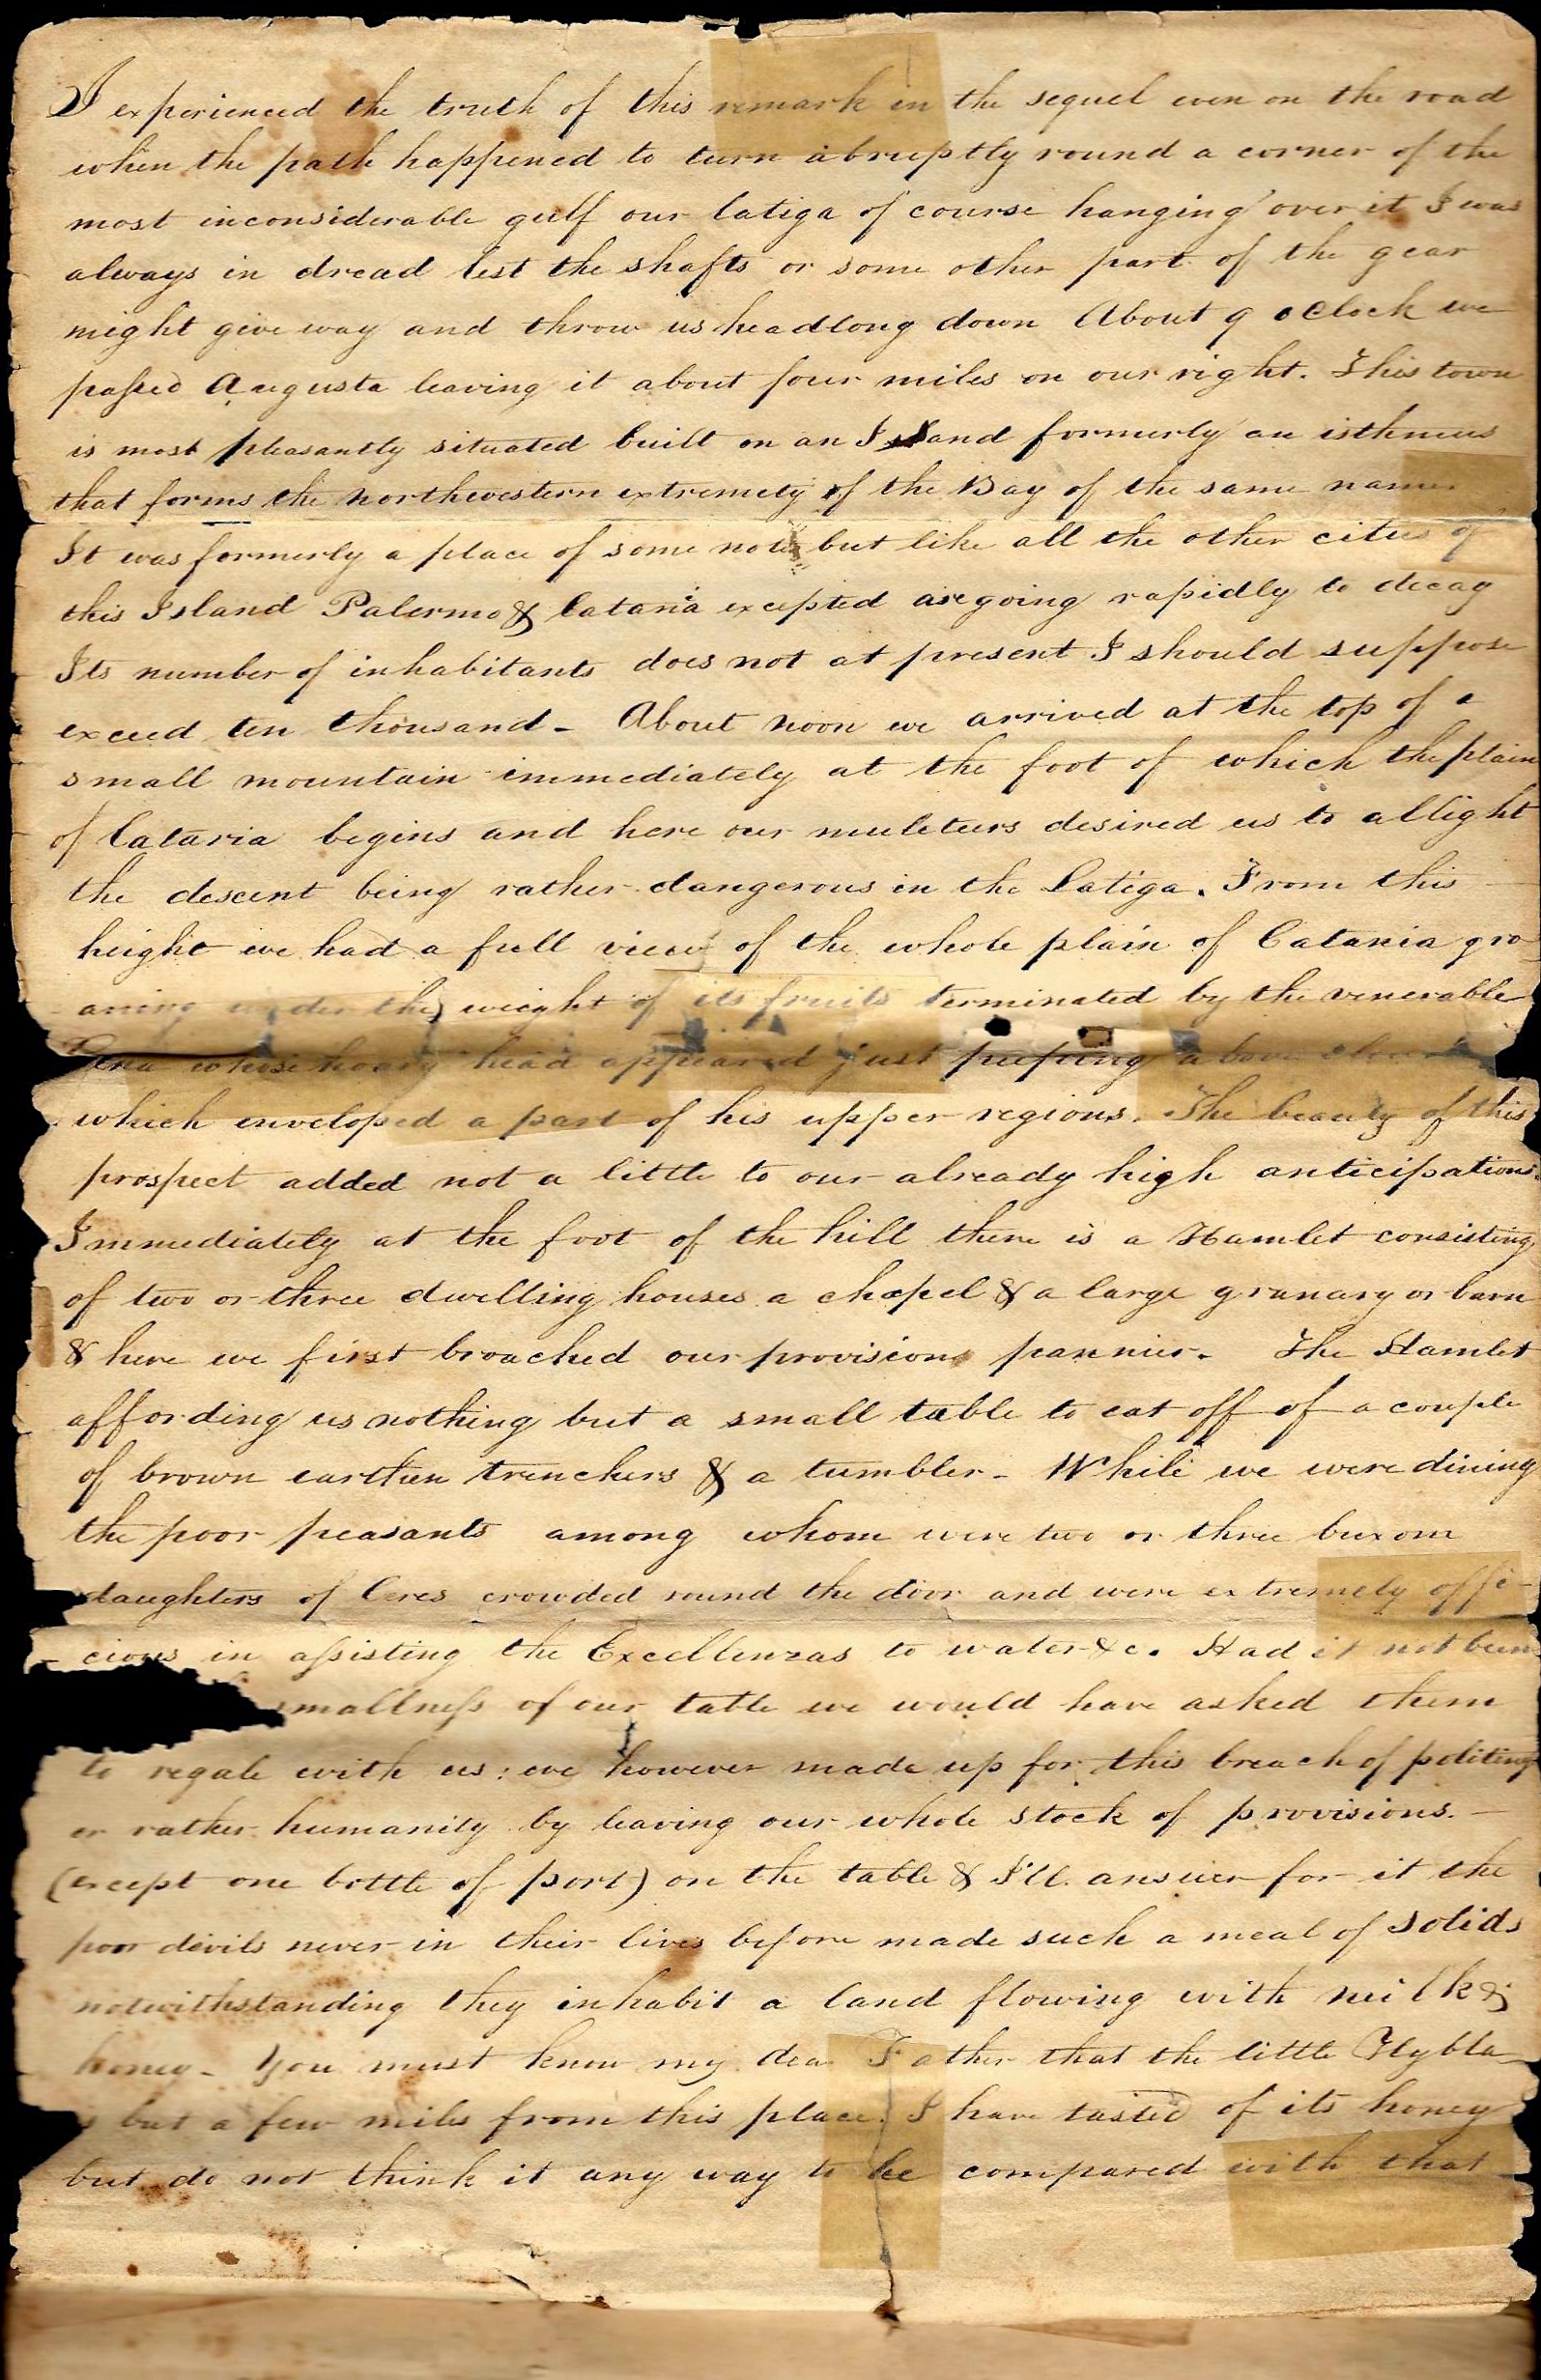 I experienced the truth of this remark in the sequel even on the road
when the path happened to turn abruptly round a corner of the
most inconsiderable gulf our latiga of course hanging over it I was
always in dread lest the shafts or some other part of the gear
might give way and throw us headlong down About 9 oClock we
passed Augusta leaving it about four miles on our right. This town
is most pleasantly situated built on an Island formerly an isthmus
that forms the northwestern extremety of the Bay of the same name.
It was formerly a place of some note but like all the other cities of
this Island Palermo & Catania excepted are going rapidly to decay
Its number of inhabitants does not at present I should suppose
exceed ten thousand - About noon we arrived at the top of a
small mountain immediately at the foot of which the plain
of Cataria begins and here our muleteers desired us to allight
the descent being rather dangerous in the Latiga. From this
height we had a full view of the whole plain of Catania gro
aning under the weight of its fruits terminated by the venerable
whose hoary head appeared just peeping above
which enveloped a part of his upper regions. The beauty of this
prospect added not a little to our already high anticipations.
Immediately at the foot of the hill there is a Hamlet consisting
of two or three dwelling houses a chapel & a large granary or barn
& here we first broached our provisions pannier. The Hamlet
affording us nothing but a small table to eat off of a couple
of brown earthen trenchers & a tumbler - While we were dining
the poor peasants among whom were two or three buxom
daughters of Ceres crowded round the door and were extremely offi-
-cious in assisting the Excellenzas to water &c. Had it not been
smallness of our table we would have asked them
to regale with us: we however made up for this breach of
or rather humanity by leaving our whole stock of provisions. -
(except one bottle of port) on the table & I'll answer for it the
poor devils never in their lives before made such a meal of solids
notwithstanding they inhabit a land flowing with milk &
honey - You must know my dear Father that the little Hybla
is but a few miles from this place. I have tasted of its honey
but do not think it any way to be compared with that